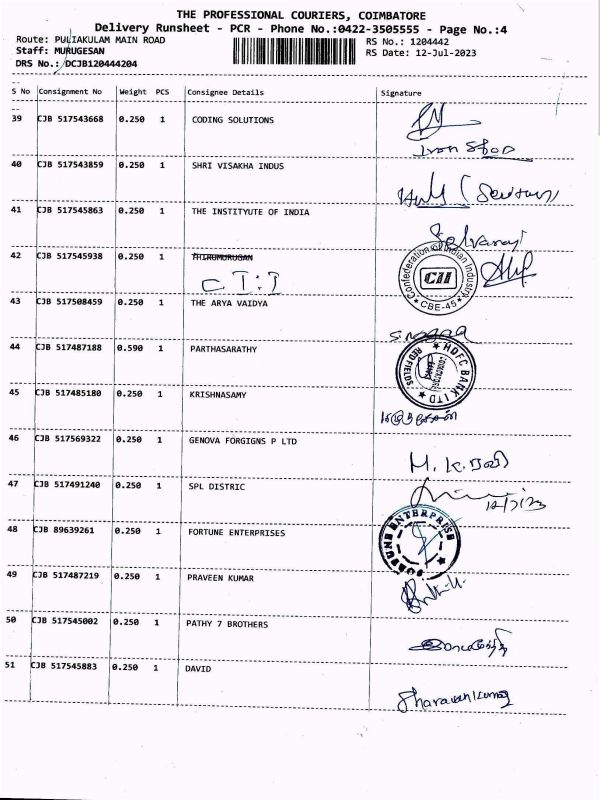 THE PROFESSIONAL COURIERS, COIMBATORE
Delivery Runsheet - PCR - Phone No.:0422-3505555 - Page No.:4
Route: PULIAKULAM MAIN ROAD
RS No.: 1204442
Staff: MURUGESAN
RS Date: 12-Jul-2023
DRS No.: DCJB120444204
S No Consignment No Weight PCS Consignee Details Signature
39 CJB 517543668 0.250 1 CODING SOLUTIONS
40 CJB 517543859 0.250 1 SHRI VISAKHA INDUS
41 CJB 517545863 0.250 1 THE INSTITYUTE OF INDIA
Selvaraj
42 CJB 517545938 0.250 1 THIRUMURUGAN
C I : I
Confederation of Indian Industry
CII
CBE-45
43 CJB 517508459 0.250 1 THE ARYA VAIDYA
44 CJB 517487188 0.590 1 PARTHASARATHY
HDFC BANK LTD
RED FIELDS
45 CJB 517485180 0.250 1 KRISHNASAMY
46 CJB 517569322 0.250 1 GENOVA FORGIGNS P LTD
M. K. ரவி
47 CJB 517491240 0.250 1 SPL DISTRIC
12/7/23
48 CJB 89639261 0.250 1 FORTUNE ENTERPRISES
FORTUNE ENTERPRISE
49 CJB 517487219 0.250 1 PRAVEEN KUMAR
50 CJB 517545002 0.250 1 PATHY 7 BROTHERS
51 CJB 517545883 0.250 1 DAVID
Sharavankumar